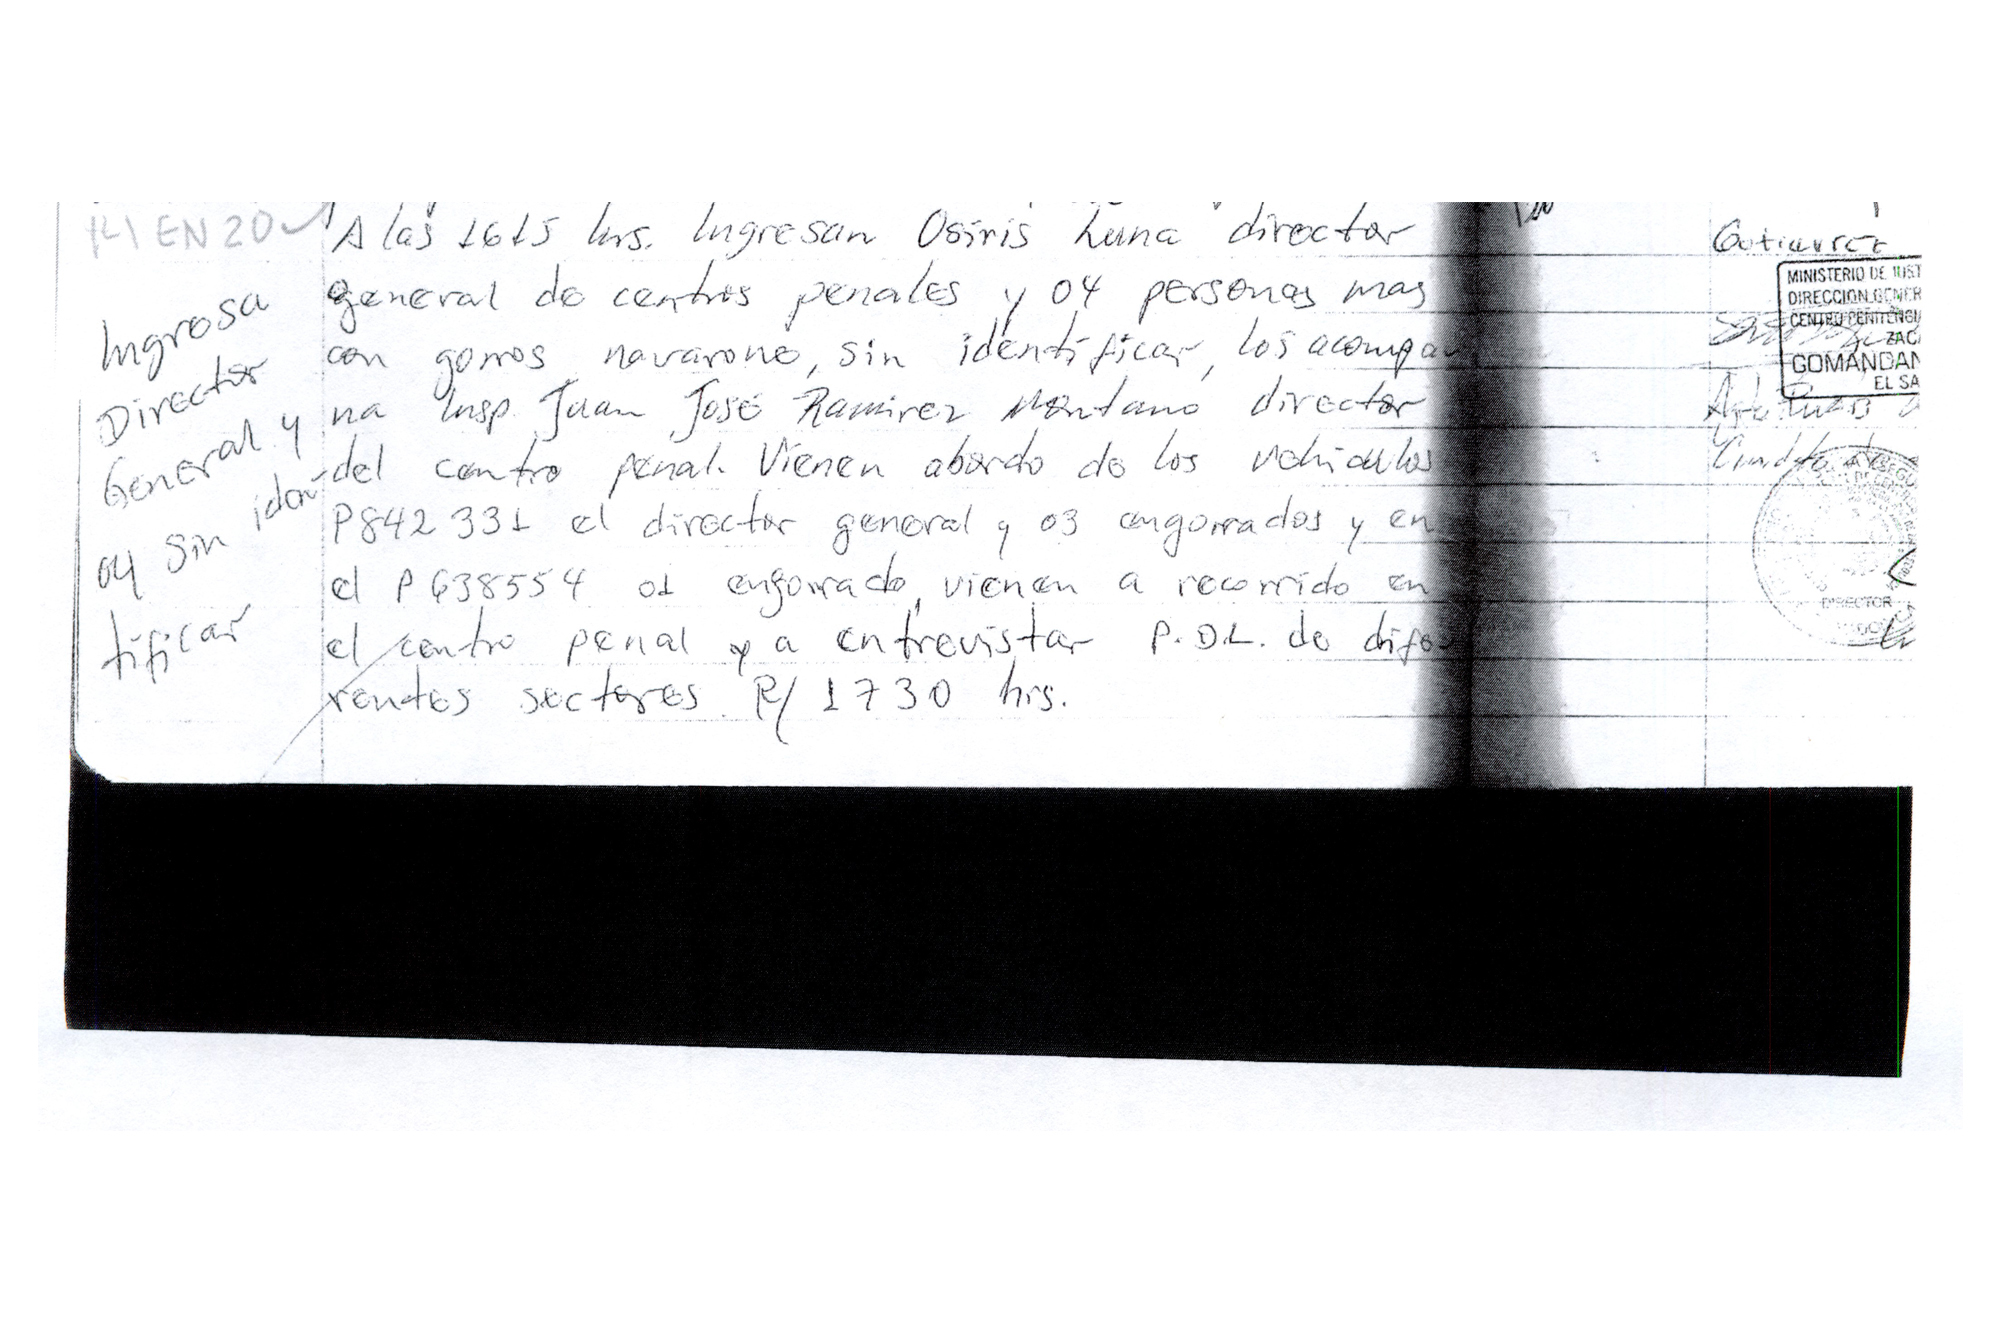 141 EN 20
Ingresa
Director
General y
04 Sin iden
tificar
A las 1615 hrs. Ingresan Osiris Luna director
general de centros penales y 04 personas mas
con gorros navarone, sin identificar, los acompa
na Insp. Juan José Ramirez Montano director
del centro penal. Vienen abordo de los vehiculos
P842 331 el director general y 03 engorrados y en
el P638554 01 engorrado, vienen a recorrido en
el centro penal y a entrevistar P.D.L. de dife
rentes sectores R/ 1730 hrs.
Gutierrez
MINISTERIO DE JUST
DIRECCION GENER
CENTRO PENITENCI
ZAC
COMANDAN
EL SA
DIRECTOR